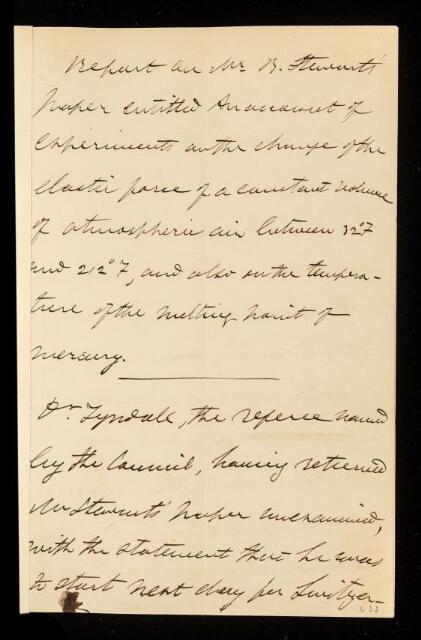 Report on Mr B. Stewart's
paper entitled An account of
experiments on the change of the
elastic force of a constant volume
of atmospheric air between 32°F
and 212°F, and also on the tempera-
ture of the melting point of
mercury.
Dr Tyndall, the referee named
by the Council, having returned
Mr Stewart's paper unexamined,
with the statement that he was
to start next day for Switzer-